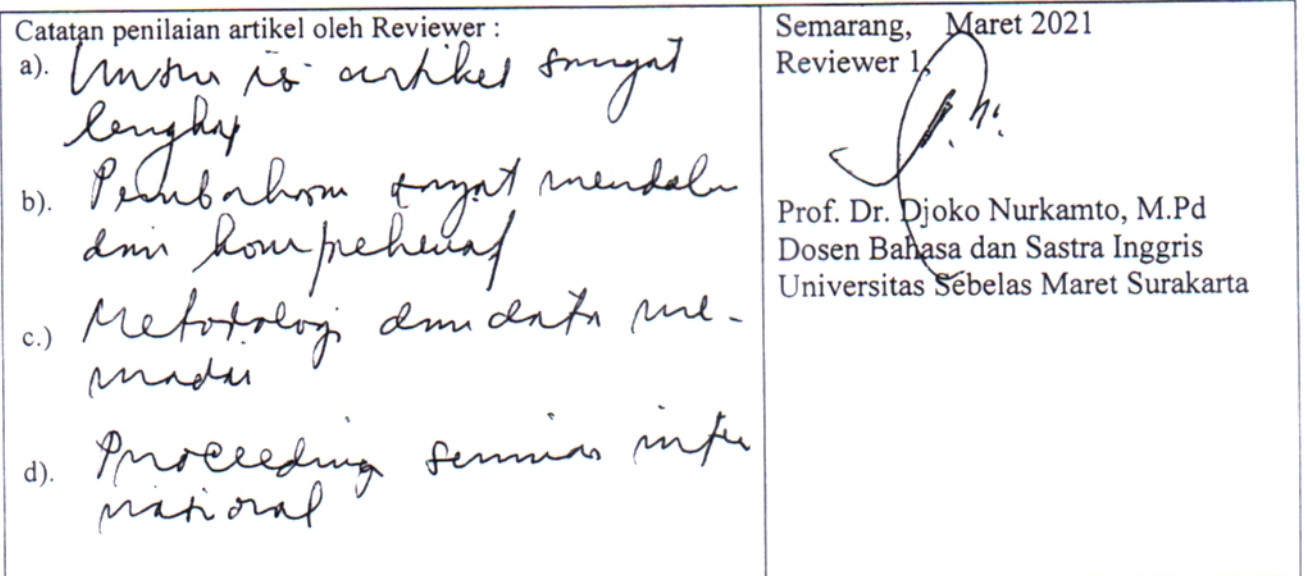 Catatan penilaian artikel oleh Reviewer :
a). Unsur isi artikel sangat
lengkap
b). Pembahasan sangat mendalam
dan komprehensif
c.) Metodologi dan data me-
madai
d). Proceeding seminar inter
national
Semarang, Maret 2021
Reviewer 1,
Prof. Dr. Djoko Nurkamto, M.Pd
Dosen Bahasa dan Sastra Inggris
Universitas Sebelas Maret Surakarta